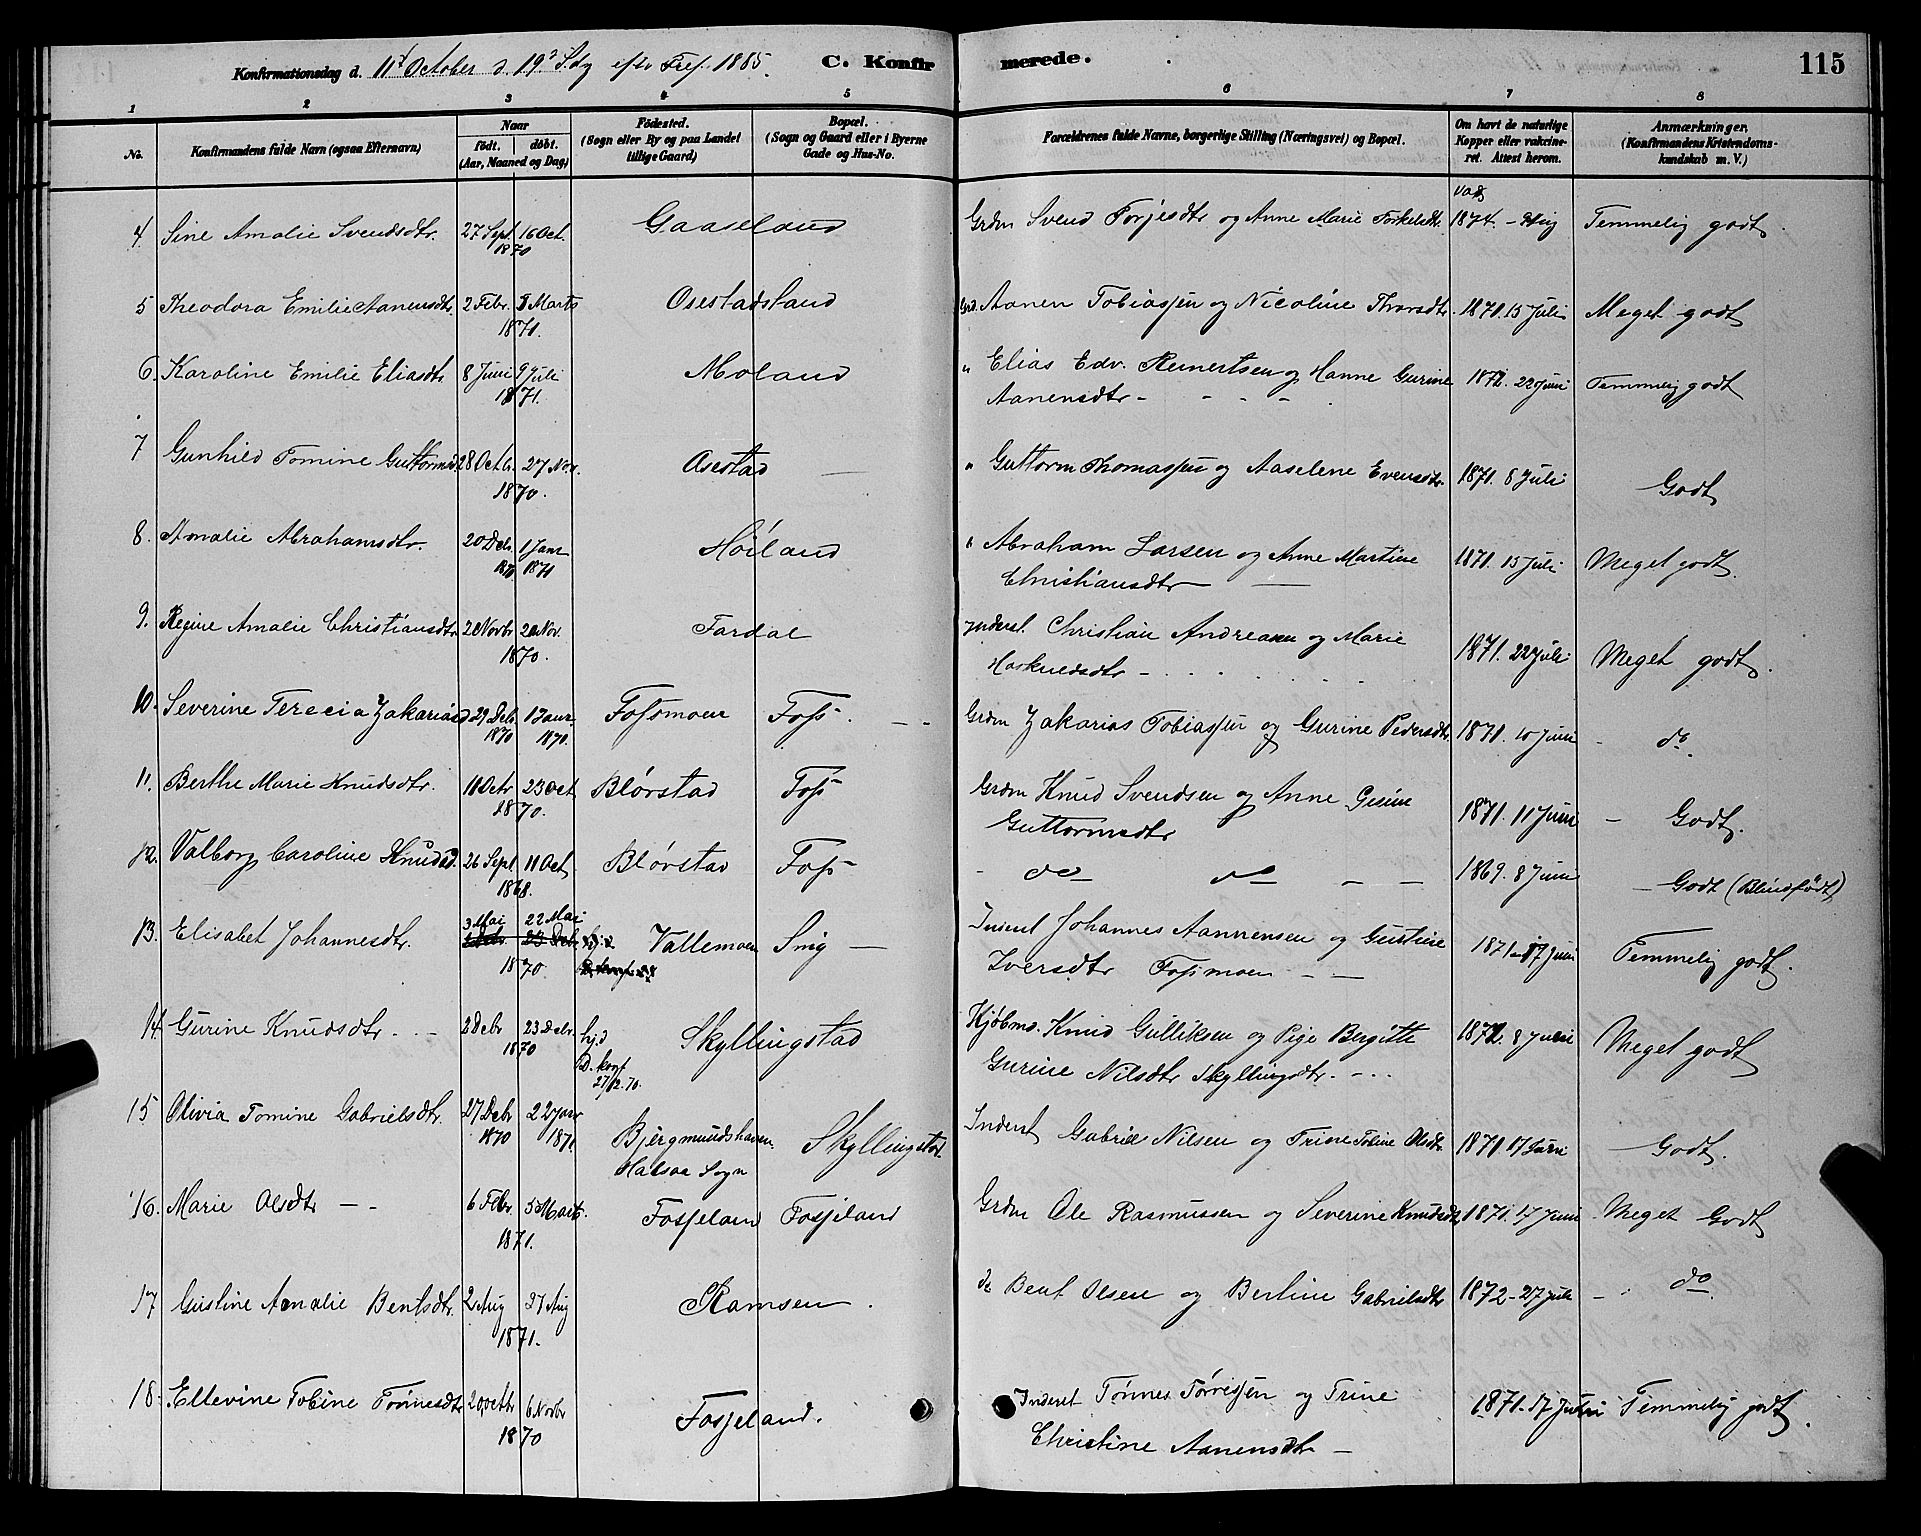 Konfirmationsdag d. 11t October d. 19d Sdg efter Tref. 1885. C. Konfirmerede. 115
1 2 3 4 5 6 7 8
No. Konfirmandens fulde Navn (ogsaa Efternavn) Naar födt. döbt. (Aar, Maaned og Dag) Födested. (Sogn eller By og paa Landet tillige Gaard) Bopæl. (Sogn og Gaard eller i Byerne Gade og Hus-No. Forældrenes fulde Navne, borgerlige Stilling (Næringsvei) og Bopæl. Om havt de naturlige Kopper eller vaccineret. Attest herom. Anmærkninger. (Konfirmandens Kristendomskundskab m. V.)
4. Sine Amalie Svendsdtr. 27 Sept 16 Oct. 1870 Gaaseland Grdm Svend Torjesdtr og Anne Marie Torkelsdtr. 1874. Temmelig godt.
5 Theodora Emilie Aanensdtr. 2 Febr. Marts 1871. Osestadsland Aanen Tobiassen og Nicoline Thorsdtr. 1871. 15 Juli Meget godt
6. Karoline Emilie Eliasdtr 8 Juni 9 Juli 1871. Moland " Elias Edv. Reinertsen og Hanne Gurine Aanensdtr - - - - 22 Juni Temmelig godt
7 Gunhild Tomine Guttormsd 28 Octb. 27 Nov. 1870. Osestad — " Guttorm Thomassen og Aaselene Evensdtr. 1871. 8 Juli Godt
8. Amalie Abrahamsdtr. 20 Debr. 1870 1 Janr 1871 Höiland " Abraham Larsen og Anne Martine Christiansdtr — — 1871. 15 Juli Meget godt.
9. Regine Amalie Christiansdtr Novbr 20 Nov. 1870. Tardal Inderst. Christian Andreasen og Marie - 1871. 22 Juli Meget godt.
10. Severine Terecia Zakariasd 29 Debr 1870 1 Janr 1870. Fossmoen Foss. - - Grdm Zakarias Tobiassen og Gurine Pedersdtr. 1871. 10 Juni - do
11. Berthe Marie Knudsdtr. Octr 23 Oct 1870. Blörstad Foss Grdm Knud Svendsen og Anne Gusine Guttormsdtr 1871. 11 Juni - Godt.
12. Valborg Caroline Knudsd. 26 Sept 11 Oct 1868. Blörstad Foss - do do — — 1869. 8 Juni - Godt (Blindfödt)
13. Elisabet Johannesdtr. 3 Mai 22 Mai 1870. Vallemoen Sng — Inderst Johannes Aannensen og Gustine Iversdtr Fossmoen — — 1871 - 17 Juni Temmelig godt.
14. Gurine Knudsdtr. - - 2 Debr 23 Debr. 1870 hj.d D. konf 27/12.70. Skyllingstad Kjöbmd. Knud Gulliksen og Pige Bergitte Gurine Nilsdtr Skyllingsdtr. - - - 8 Juni Meget godt
15 Olivia Tomine Gabrielsdtr. 27 Debr 1870 22 Janr 1871. Bjergmundshavn. Halsaa Sogn Skyllingstad. Inderst Gabriel Nilsen og Trine Tobine Olsdtr. 1871. 17 Juni Godt.
16. Marie Olsdtr — - 6 Febr. 5 Marts. 1871. Fosseland Fosseland Grdm Ole Rasmussen og Severine Knudsdtr 1871. 17 Juni - Meget Godt
17 Gustine Amalie Bentsdtr. 2 Aug 27 Aug 1871. Ramsen. do Bent Olsen og Bertine Gabrielsdtr 1872 - 27 Juli - do
18. Ellevine Tobine Tönnesdtr Octbr 6 Novbr 1870 Fosseland. Inderst Tönnes Törressen og Trine Christine Aanensdtr — 1871. 17 Temmelig godt.